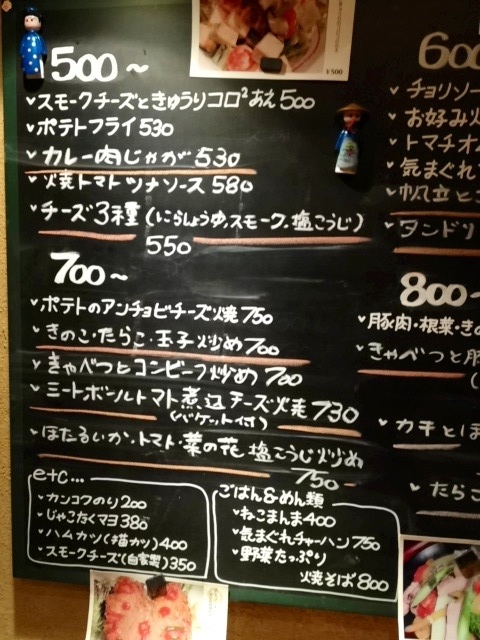 500〜
スモークチーズときゅうりコロ²あえ 500
ポテトフライ 530
カレー肉じゃが 530
火焼トマトツナソース 580
チーズ3種(にらしょうゆ,スモーク,塩こうじ)
550
700〜
ポテトのアンチョビチーズ焼 750
きのこ・たらこ・玉子炒め 700
きゃべつとコンビーフ炒め 700
ミートボールトマト煮込チーズ焼 730
(バケット付)
ほたるいか,トマト・菜の花 塩こうじ炒め
750
etc...
カンコクのり 200
じゃこたくマヨ 380
ハムカツ(チ昔カツ) 400
スモークチーズ(自家製) 350
ごはん&めん類
ねこまんま 400
気まぐれチャーハン 750
野菜たっぷり
焼そば 800
600
チョリソー
お好み
トマチオ
気まぐれ
帆立と
タンドリ
800〜
豚肉・根菜・きの
きゃべつと
カキとほ
たらこ
¥500